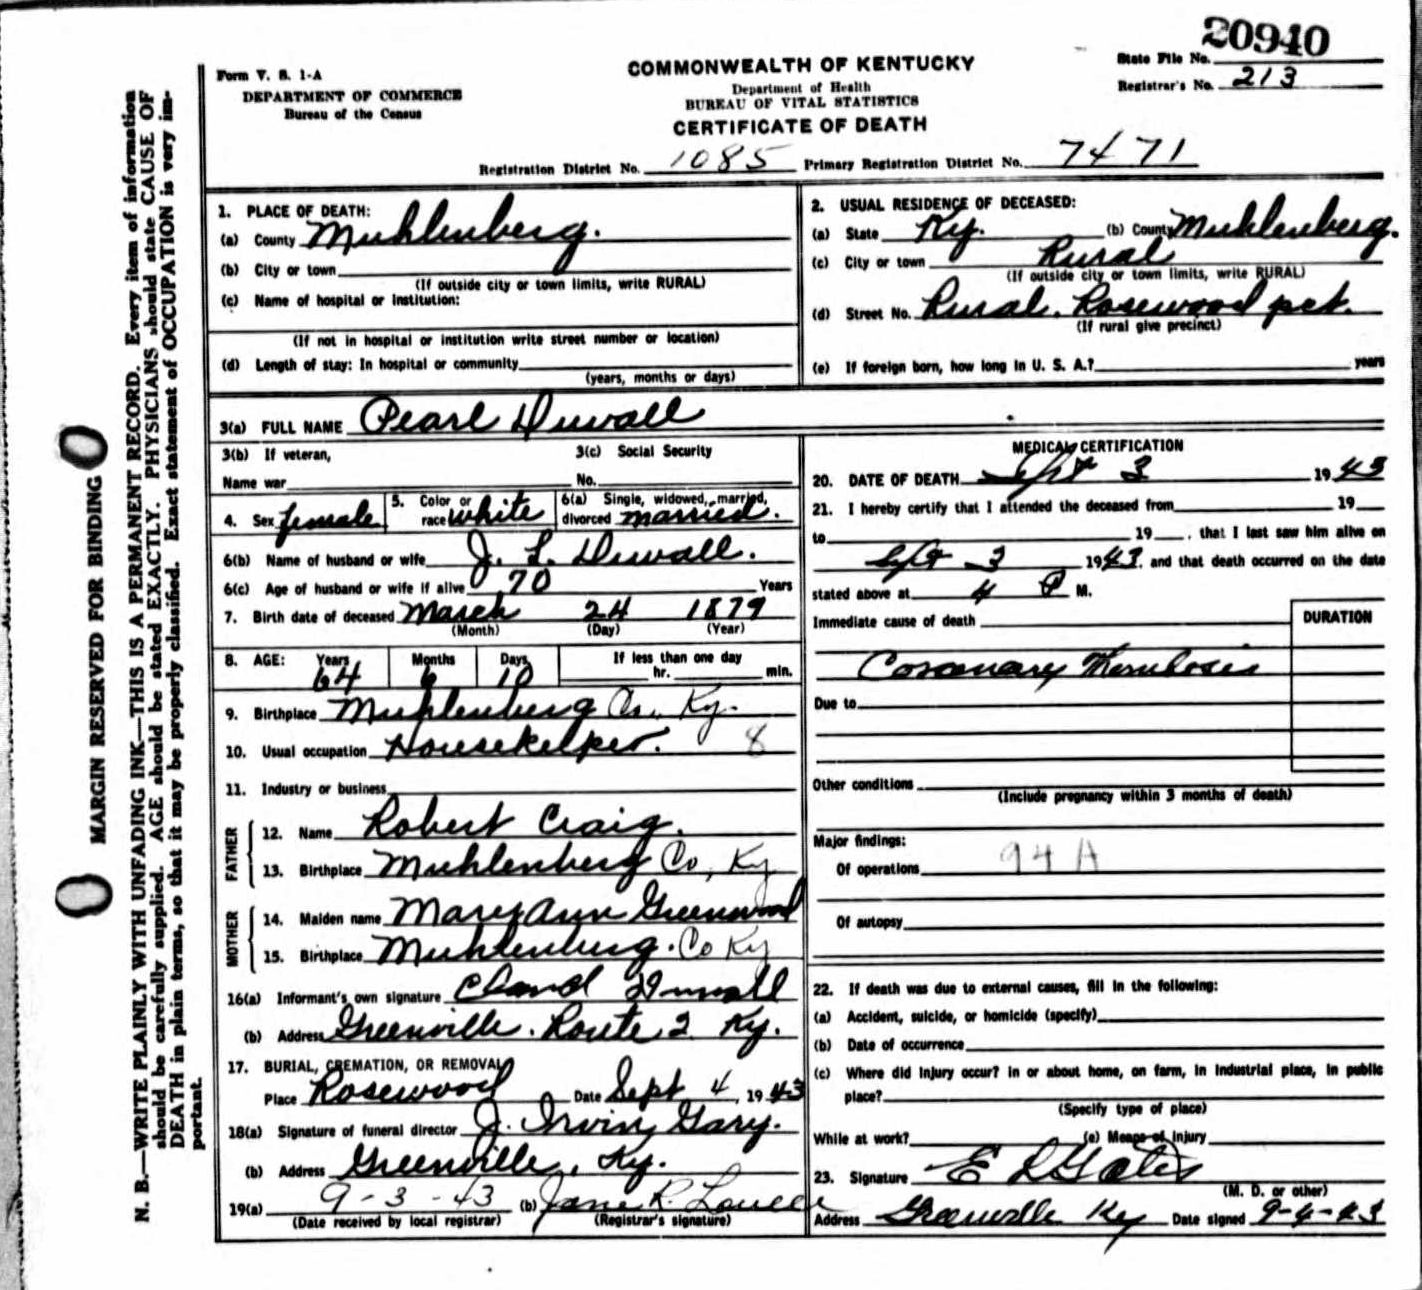 20940
State File No.
Registrar's No. 213
Form V. S. 1-A
DEPARTMENT OF COMMERCE
Bureau of the Census
COMMONWEALTH OF KENTUCKY
Department of Health
BUREAU OF VITAL STATISTICS
CERTIFICATE OF DEATH
Registration District No. 1085 Primary Registration District No. 7471
MARGIN RESERVED FOR BINDING
N. B.—WRITE PLAINLY WITH UNFADING INK—THIS IS A PERMANENT RECORD. Every item of information
should be carefully supplied. AGE should be stated EXACTLY. PHYSICIANS should state CAUSE OF
DEATH in plain terms, so that it may be properly classified. Exact statement of OCCUPATION is very im-
portant.
1. PLACE OF DEATH:
(a) County Muhlenberg.
(b) City or town
(If outside city or town limits, write RURAL)
(c) Name of hospital or institution:
(If not in hospital or institution write street number or location)
(d) Length of stay: In hospital or community
(years, months or days)
2. USUAL RESIDENCE OF DECEASED:
(a) State Ky. (b) County Muhlenberg.
(c) City or town Rural
(If outside city or town limits, write RURAL)
(d) Street No. Rural. Rosewood pct.
(If rural give precinct)
(e) If foreign born, how long in U. S. A.? years
3(a) FULL NAME Pearl Duvall
3(b) If veteran, 3(c) Social Security
Name war No.
4. Sex female 5. Color or race white 6(a) Single, widowed, married, divorced married.
6(b) Name of husband or wife J. L. Duvall.
6(c) Age of husband or wife if alive 70 Years
7. Birth date of deceased March 24 1879
(Month) (Day) (Year)
8. AGE: Years Months Days If less than one day
64 6 10 hr. min.
9. Birthplace Muhlenberg Co., Ky.
10. Usual occupation Housekeeper. 8
11. Industry or business
FATHER
12. Name Robert Craig.
13. Birthplace Muhlenberg Co, Ky
MOTHER
14. Maiden name Mary Ann Greenwood
15. Birthplace Muhlenburg. Co Ky
16(a) Informant's own signature Claud Duvall
(b) Address Greenville. Route 2 Ky.
17. BURIAL, CREMATION, OR REMOVAL
Place Rosewood Date Sept 4, 1943
18(a) Signature of funeral director J. Irvin Gary.
(b) Address Greenville, Ky.
19(a) 9-3-43 (b) Jane R.
(Date received by local registrar) (Registrar's signature)
MEDICAL CERTIFICATION
20. DATE OF DEATH Sept 3 1943
21. I hereby certify that I attended the deceased from 19
to 19 , that I last saw him alive on
Sept 3 1943, and that death occurred on the date
stated above at 4 P M.
Immediate cause of death DURATION
Coronary Thrombosis
Due to
Other conditions
(Include pregnancy within 3 months of death)
Major findings:
94 A
Of operations
Of autopsy
22. If death was due to external causes, fill in the following:
(a) Accident, suicide, or homicide (specify)
(b) Date of occurrence
(c) Where did injury occur? in or about home, on farm, in industrial place, in public
place?
(Specify type of place)
While at work? (e) Means of injury
23. Signature E L Gates
(M. D. or other)
Address Greenville Ky Date signed 9-4-43